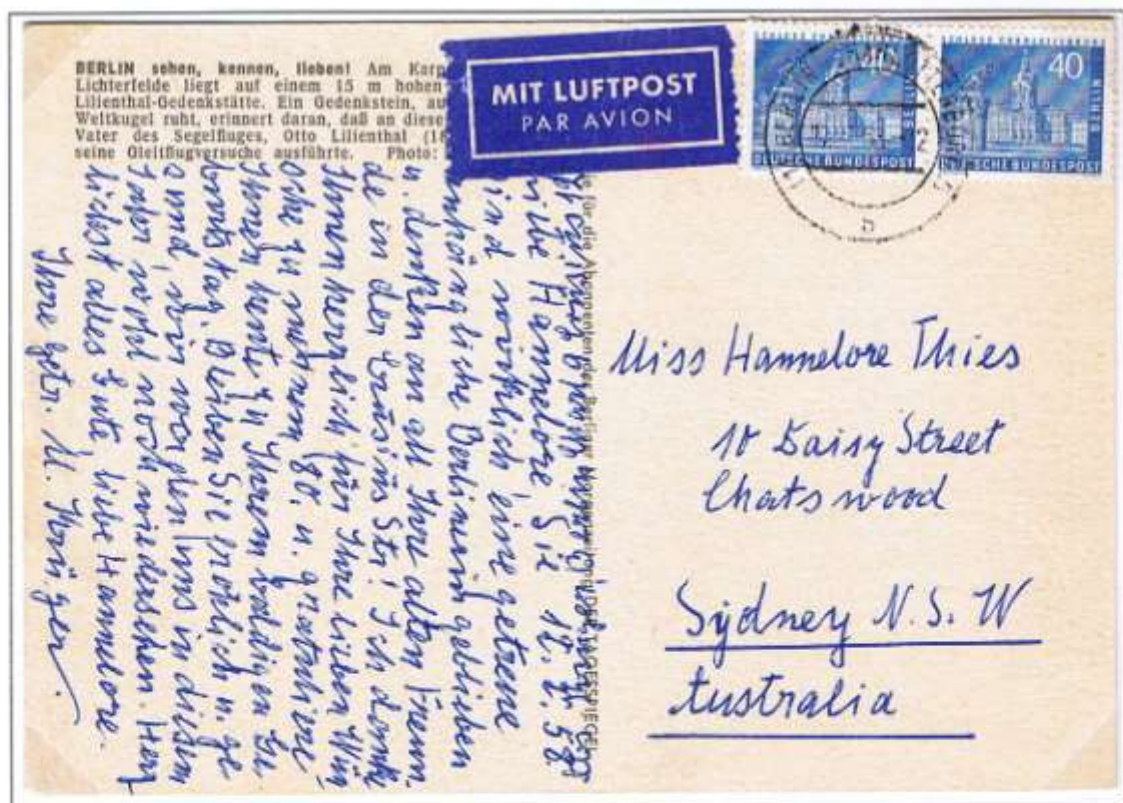 BERLIN sehen, kennen, lieben! Am Karp
Lichterfelde liegt auf einem 15 m hohen
Lilienthal-Gedenkstätte. Ein Gedenkstein, au
Weltkugel ruht, erinnert daran, daß an diese
Vater des Segelfluges, Otto Lilienthal (18
seine Gleitflugversuche ausführte. Photo:
MIT LUFTPOST
PAR AVION
DEUTSCHE BUNDESPOST
40
BERLIN
DEUTSCHE BUNDESPOST
für die Abonnenten der Berliner Morgenzeitung DER TAGESSPIEGEL
12. 2. 58
Liebe Hannelore, Sie
sind wirklich eine getreue
anhängliche Berlinerin geblieben
u. denken an all Ihre alten Freun-
de in der Str! Ich danke
Ihnen herzlich für Ihre lieben Wün
sche zu meinem 80. u. gratuliere
Ihnen heute zu Ihrem baldigen Ge
burtstag. Bleiben Sie fröhlich u. ge
sund, wir werden uns in diesem
Jahr wohl noch wiedersehen. Herz
lichst alles Gute liebe Hannelore.
Ihre getr. M. Krüger.
Miss Hannelore Thies
10 Daisy Street
Chatswood
Sydney N.S.W
Australia